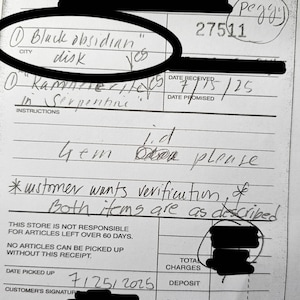 Peggy
27511
① "Black obsidian"
CITY
disk yes
① "Kammererite yes
DATE RECEIVED
7/15/25
in Serpentine"
DATE PROMISED
INSTRUCTIONS
i.d
Gem please
*customer wants verification, *
Both items are as described
THIS STORE IS NOT RESPONSIBLE
FOR ARTICLES LEFT OVER 60 DAYS.
NO ARTICLES CAN BE PICKED UP
WITHOUT THIS RECEIPT.
TOTAL
CHARGES
DATE PICKED UP
7/25/2025
DEPOSIT
CUSTOMER'S SIGNATU